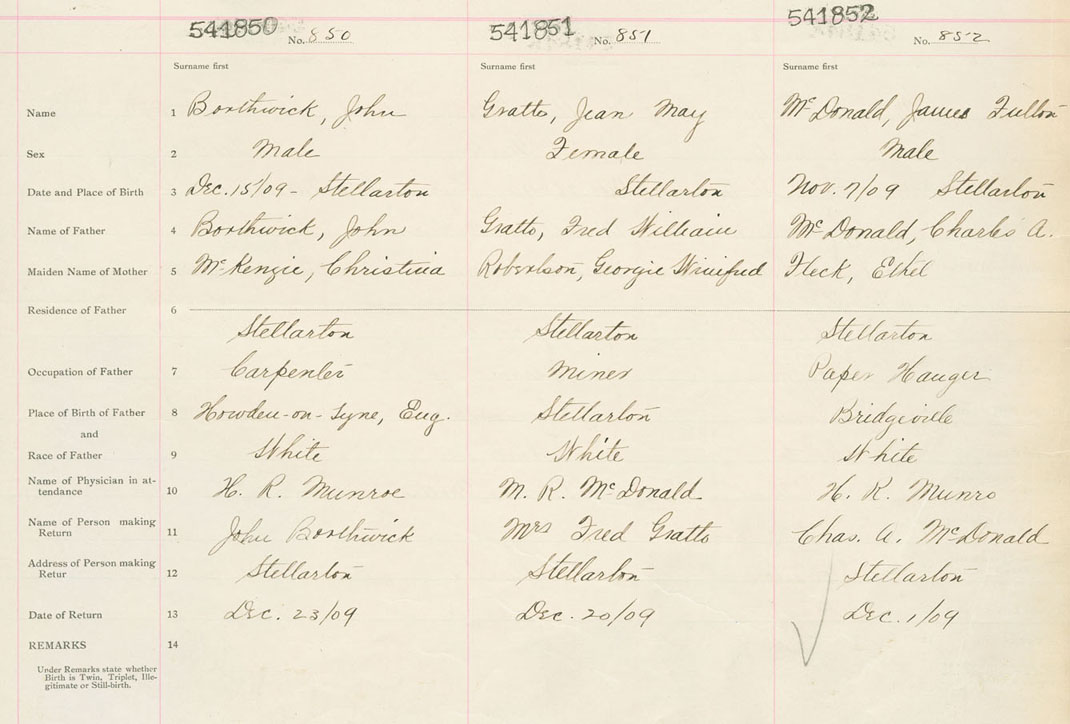 541850 No. 850 541851 No. 851 541852 No. 852
Surname first Surname first Surname first
Name 1 Borthwick, John Gratto, Jean May McDonald, James Fulton
Sex 2 Male Female Male
Date and Place of Birth 3 Dec. 15/09 - Stellarton Stellarton Nov. 7/09 Stellarton
Name of Father 4 Borthwick, John Gratto, Fred William McDonald, Charles A.
Maiden Name of Mother 5 McKenzie, Christina Robertson, Georgie Winifred Fleck, Ethel
Residence of Father 6
Stellarton Stellarton Stellarton
Occupation of Father 7 Carpenter Miner Paper Hanger
Place of Birth of Father 8 Howden-on-Tyne, Eng. Stellarton Bridgeville
and
Race of Father 9 White White White
Name of Physician in at-
tendance 10 H. R. Munroe M. R. McDonald H. R. Munro
Name of Person making
Return 11 John Borthwick Mrs Fred Gratto Chas. A. McDonald
Address of Person making
Retur 12 Stellarton Stellarton Stellarton
Date of Return 13 Dec. 23/09 Dec. 20/09 Dec. 1/09
REMARKS 14
Under Remarks state whether
Birth is Twin, Triplet, Ille-
gitimate or Still-birth.